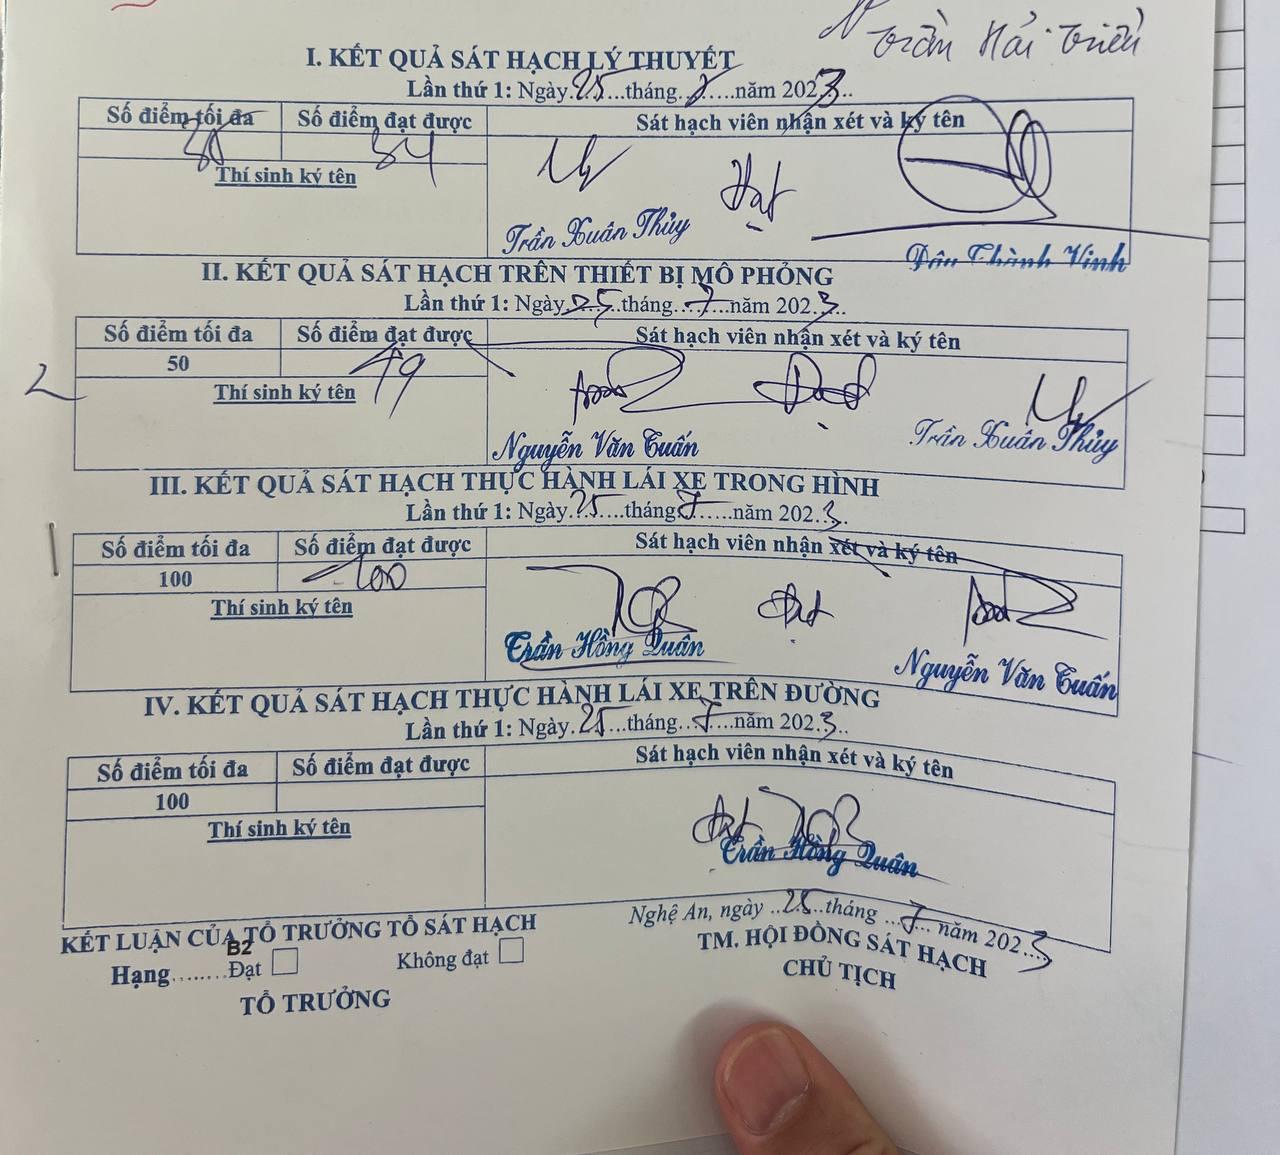 Trần Hải Triều
I. KẾT QUẢ SÁT HẠCH LÝ THUYẾT
Lần thứ 1: Ngày 25 tháng 7 năm 2023
Số điểm tối đa Số điểm đạt được Sát hạch viên nhận xét và ký tên
34
Thí sinh ký tên
Đạt
Trần Xuân Thủy Đậu Thành Vinh
II. KẾT QUẢ SÁT HẠCH TRÊN THIẾT BỊ MÔ PHỎNG
Lần thứ 1: Ngày 25 tháng 7 năm 2023
Số điểm tối đa Số điểm đạt được Sát hạch viên nhận xét và ký tên
50 49
Thí sinh ký tên
Đạt
Nguyễn Văn Tuấn Trần Xuân Thủy
III. KẾT QUẢ SÁT HẠCH THỰC HÀNH LÁI XE TRONG HÌNH
Lần thứ 1: Ngày 25 tháng 7 năm 2023
Số điểm tối đa Số điểm đạt được Sát hạch viên nhận xét và ký tên
100 100
Thí sinh ký tên
Đạt
Trần Hồng Quân Nguyễn Văn Tuấn
IV. KẾT QUẢ SÁT HẠCH THỰC HÀNH LÁI XE TRÊN ĐƯỜNG
Lần thứ 1: Ngày 25 tháng 7 năm 2023
Số điểm tối đa Số điểm đạt được Sát hạch viên nhận xét và ký tên
100
Thí sinh ký tên
Đạt
Trần Hồng Quân
Nghệ An, ngày 25 tháng 7 năm 2023
KẾT LUẬN CỦA TỔ TRƯỞNG TỔ SÁT HẠCH
TM. HỘI ĐỒNG SÁT HẠCH
Hạng........ B2 Đạt Không đạt
CHỦ TỊCH
TỔ TRƯỞNG